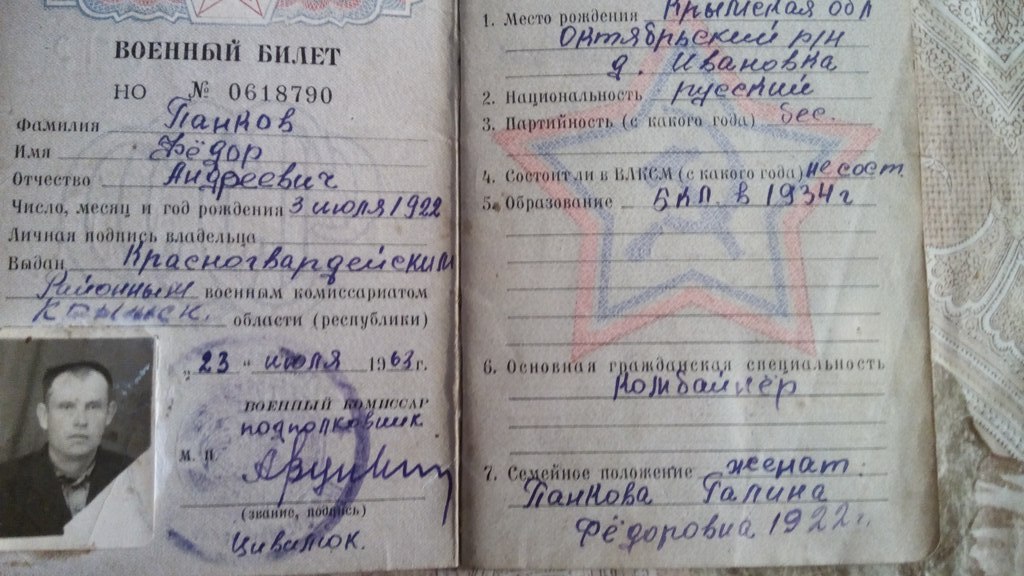 ВОЕННЫЙ БИЛЕТ
НО № 0618790
Фамилия Панков
Имя Фёдор
Отчество Андреевич
Число, месяц и год рождения 3 июля 1922
Личная подпись владельца
Выдан Красногвардейским
Районным военным комиссариатом
Крымск. области (республики)
„23" июля 1963 г.
ВОЕННЫЙ КОМИССАР
подполковник
М. П.
(звание, подпись)
1. Место рождения Крымская обл
Октябрьский р/н
д. Ивановка
2. Национальность русский
3. Партийность (с какого года) бес.
4. Состоит ли в ВЛКСМ (с какого года) не сост
5. Образование 5 кл. в 1934 г
6. Основная гражданская специальность
Комбайнёр
7. Семейное положение женат
Панкова Галина
Фёдоровна 1922 г.